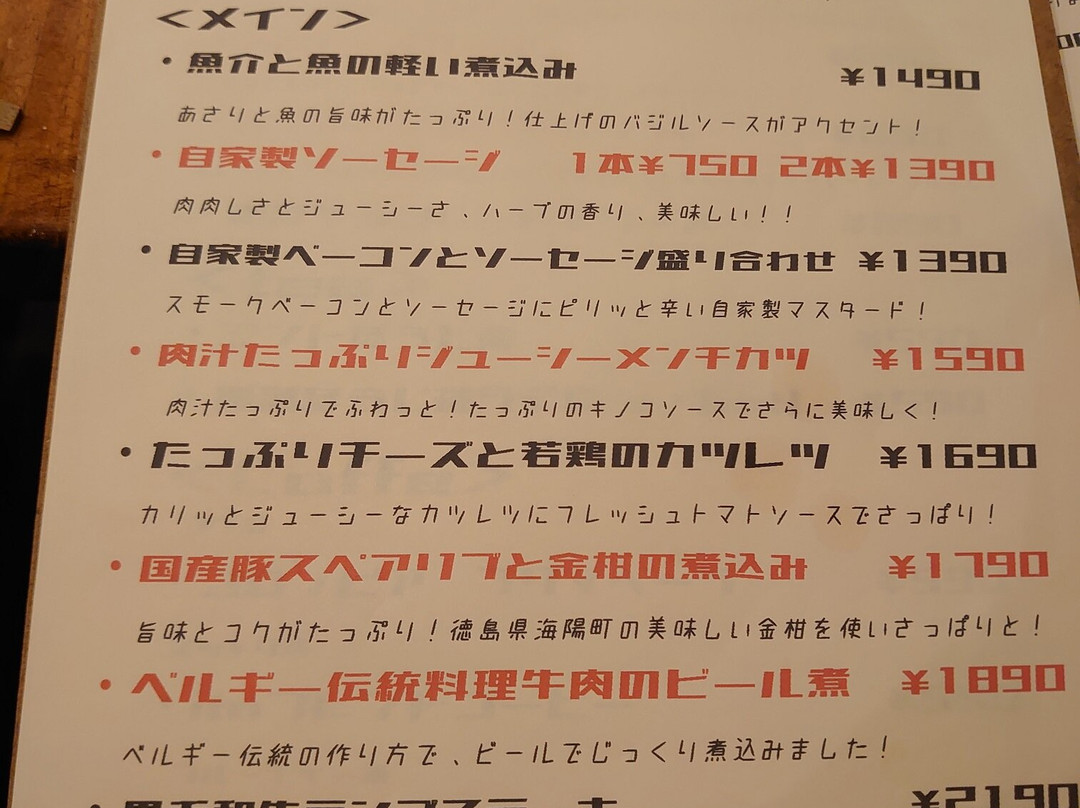 <メイン>
・魚介と魚の軽い煮込み ¥1490
あさりと魚の旨味がたっぷり！仕上げのバジルソースがアクセント！
・自家製ソーセージ 1本¥750 2本¥1390
肉肉しさとジューシーさ、ハーブの香り、美味しい！！
・自家製ベーコンとソーセージ盛り合わせ ¥1390
スモークベーコンとソーセージにピリッと辛い自家製マスタード！
・肉汁たっぷりジューシーメンチカツ ¥1590
肉汁たっぷりでふわっと！たっぷりのキノコソースでさらに美味しく！
・たっぷりチーズと若鶏のカツレツ ¥1690
カリッとジューシーなカツレツにフレッシュトマトソースでさっぱり！
・国産豚スペアリブと金柑の煮込み ¥1790
旨味とコクがたっぷり！徳島県海陽町の美味しい金柑を使いさっぱりと！
・ベルギー伝統料理牛肉のビール煮 ¥1890
ベルギー伝統の作り方で、ビールでじっくり煮込みました！
¥2190